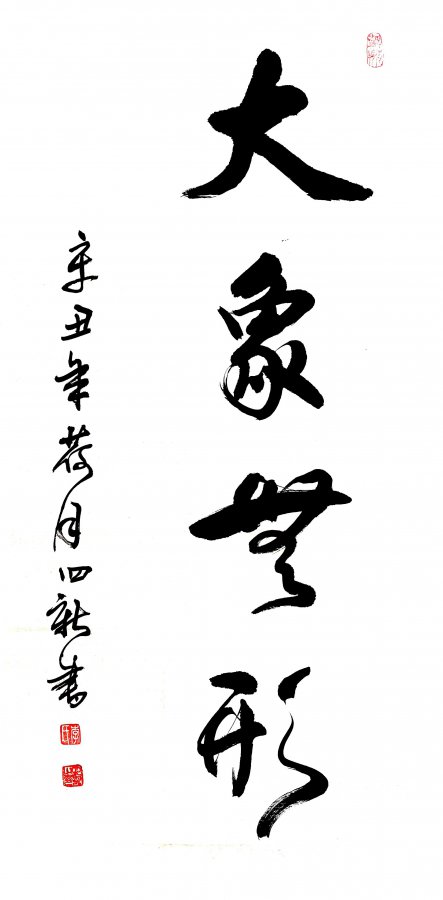 大象無形
辛丑年荷月四新书